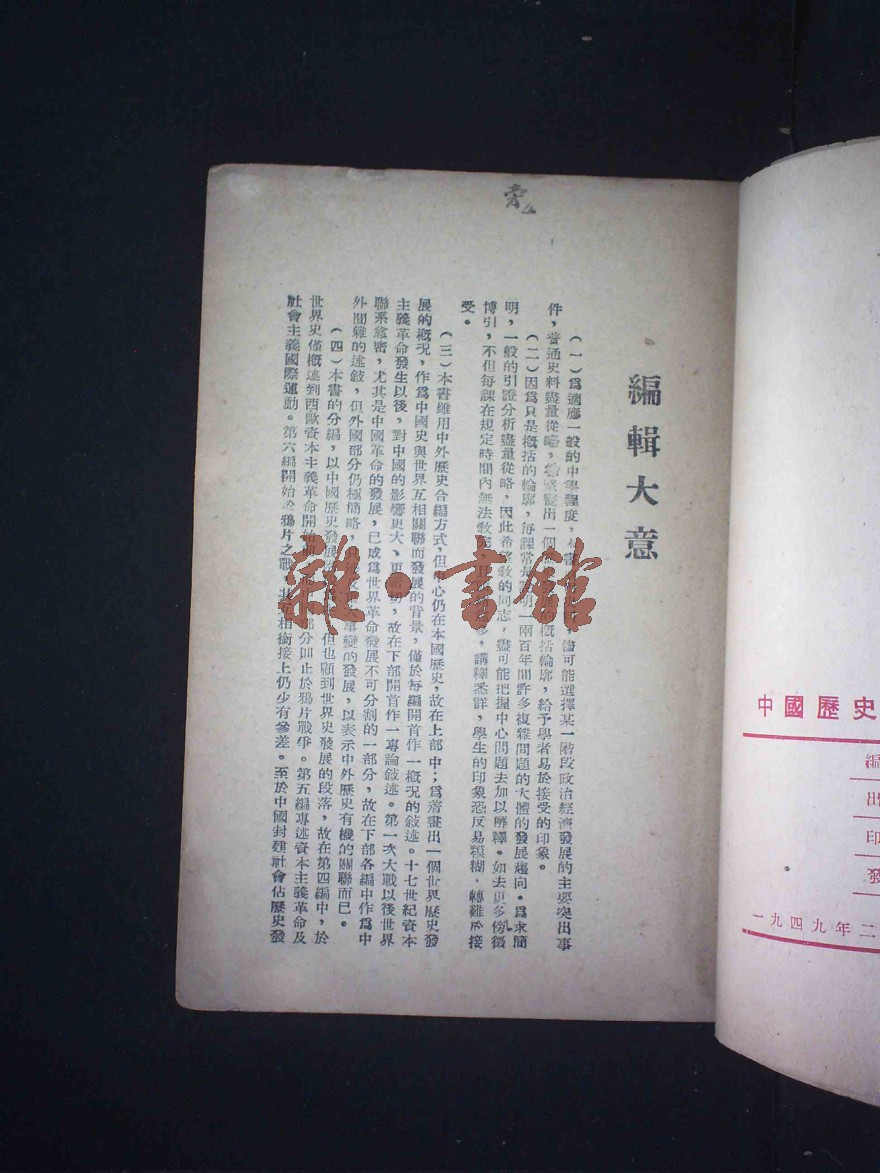 編輯大意
(一)爲適應一般的中學程度,本書儘可能選擇某一階段政治經濟發展的主要突出事
件,普通史料盡量從略,畫出一個概括輪廓,給予學者易於接受的印象。
(二)因爲只是概括的輪廓,每課常一兩百年間許多複雜問題的大體的發展趨向。爲求簡
明,一般的引證分析盡量從略,因此希望教的同志,儘可能把握中心問題去加以解釋。如去更多傍徵
博引,不但每課在規定時間內無法教完,講釋悉詳,學生的印象恐反易模糊,轉難於接
受。
(三)本書雖用中外歷史合編方式,但中心仍在本國歷史,故在上部中;爲著畫出一個世界歷史發
展的概況,作爲中國史與世界互相關聯而發展的背景,僅於每編開首作一概況的敍述。十七世紀資本
主義革命發生以後,對中國的影響更大、更密切,故在下部開首作一專論敍述。第一次大戰以後世界
聯系愈密,尤其是中國革命的發展,已成爲世界革命發展不可分割的一部分,故在下部各編中作爲中
外間雜的述敍,但外國部分仍極簡略,事變的發展,以表示中外歷史有機的關聯而已。
(四)本書的分編,以中國歷史發展但也顧到世界史發展的段落,故在第四編中,於
世界史僅概述到西歐資本主義革命開始部分即止於鴉片戰爭。第五編專述資本主義革命及
社會主義國際運動。第六編開始於鴉片之戰,相銜接上仍少有參差。至於中國封建社會佔歷史發
雜·書館
中國歷史
編
出
印
發
一九四九年二